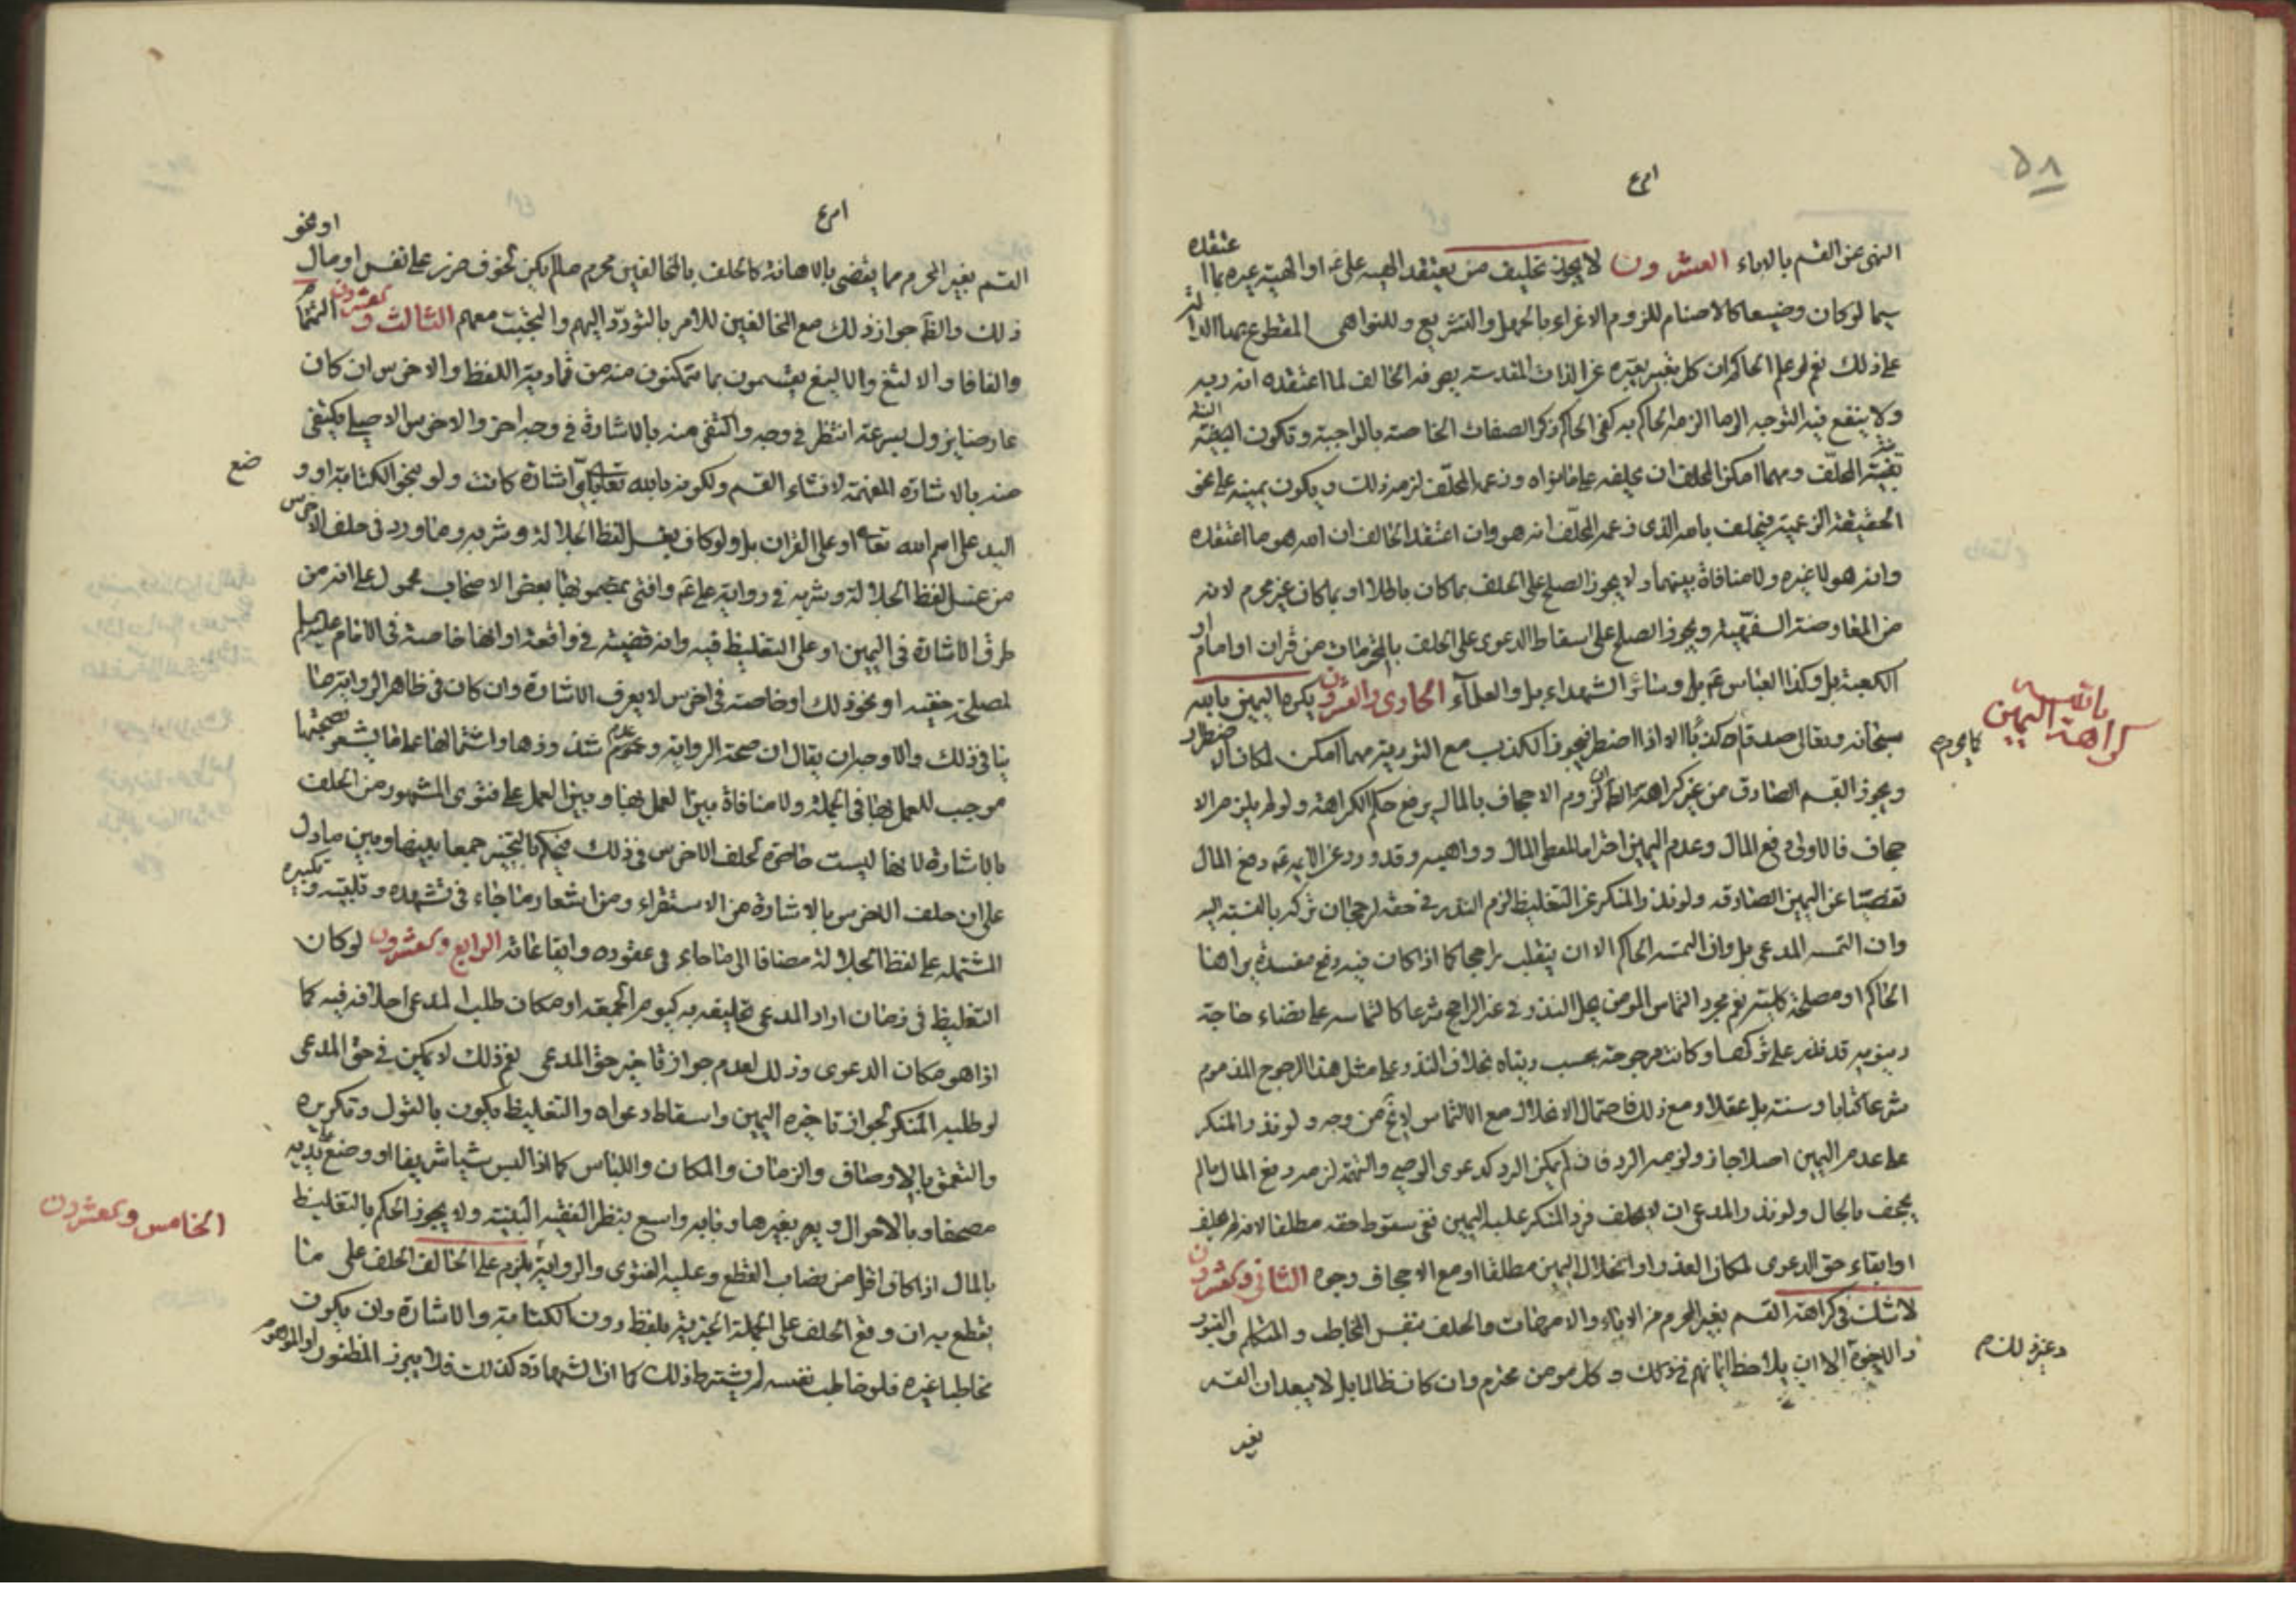 ٥٨
النهى عن القسم بالاباء العشرون لا يجوز تحليف من يعتقد الهية على عم او الهية غيره بما اعتقده
سيما لو كان وضيعا كالاصنام للزوم الاغراء بالجهل والتشريع وللنواهى المقطوع بها الدالة
على ذلك نعم لو علم الحاكم ان كل تغيير يغيره عن الذات المقدسة يصرفه الخالف لما اعتقده انه ربه
ولا ينفع فيه التوجه الى ما الزمه الحاكم به كفى الحاكم ذكر الصفات الخاصة بالواجبة وتكون النية
نية المحلف ومهما امكن المحلف ان يحلفه على ما نواه وزعمه المحلف لزمه ذلك ويكون يمينه على نحو
الحقيقة الزعمية فيحلف بالله الذى زعمه المحلف انه هو وان اعتقد الحالف ان الله هو ما اعتقده
وانه هو لا غيره ولا منافاة بينهما ولا يجوز الصلح على الحلف بما كان باطلا او بما كان غير محرم لانه
من المعاوضة السفهية ويجوز الصلح على اسقاط الدعوى على الحلف بالمحرمات من قران او امام او
الكعبة بل وكذا العباس عم بل وسائر الشهداء بل والعلماء الحادى والعشرون يكره اليمين بالله
سبحانه وتعالى صدقا وكذبا الا اذا اضطر فيجوز الكذب مع التورية مهما امكن لمكان الاضطرار
كراهة اليمين بالله
ويجوز القسم الصادق من غير كراهة كما ان لزوم الاجحاف بالمال يرفع حكم الكراهة ولو لم يلزم الا
جحاف فالاولى دفع المال وعدم اليمين احتراما لمعطى المال وواهبه وقد ورد عن الائمه عم دفع المال
تفصيا عن اليمين الصادقه ولو نذر المنكر عن التغليظ لزم النذر فى حقه لرجحان تركه بالنسبة اليه
وان التمسه المدعى بل وان التمسه الحاكم الا ان ينقلب راجحا كما اذا كان فيه دفع مفسدة يراها
الحاكم او مصلحة كلية نعم مجرد التماس المؤمن يحل النذر فى غير الراجح شرعا كالتماسه على قضاء حاجة
دينويه قد نذر على تركها وكانت مرجوحة بحسب دنياه بخلاف النذر على مثل هذا المرجوح المذموم
شرعا كتابا وسنة بل عقلا ومع ذلك فاحتمال الانحلال مع الالتماس لايخ من وجه ولو نذر المنكر
على عدم اليمين اصلا جاز ولزمه الرد فان لم يمكن الرد كدعوى الوصى والتهمة لزمه دفع المال ما لم
يجحف بالحال ولو نذر المدعى ان لا يحلف فرد المنكر عليه اليمين ففى سقوط حقه مطلقا لانه لم يحلف
او ابقاء حق الدعوى لمكان العذر او انحلال اليمين مطلقا او مع الاجحاف وجوه الثانى والعشرون
لا شك فى كراهة القسم بغير المحرم من الاباء والامهات والحلف بنفس المخاطب والمتكلم والقبور
والاخوة الا ان يلاحظ ايمانهم فى ذلك وكل مومن محترم وان كان ظالما بل لا يبعد ان القسم
بغير
القسم بغير المحرم مما يقضى بالاهانة كالحلف بالمخالفين محرم ما لم يكن لخوف ضرر على نفس او مال او نحو
ذلك والظ جواز ذلك مع المخالفين للامر بالتودد اليهم والتحبب معهم الثالث والعشرون التمتام
والفافا والالثغ والاليغ يقسمون بما يتمكنون منه من تمادية اللفظ والاخرس ان كان
عارضا يزول بسرعة انتظر فى وجه واكتفى منه بالاشارة فى وجه اخر والاخرس الاصيل يكتفى
منه بالاشارة المفهمة لانشاء القسم ولكونه بالله تعالى اى اشارة كانت ولو بنحو الكتابة او وضع
اليد على اسم الله تعالى او على القران بل ولو كان بغسل لفظ الجلالة وشربه وما ورد فى حلف الاخرس
من غسل لفظ الجلالة وشربه فى رواية على عم وافتى بمضمونها بعض الاصحاب محمول على انه من
طرق الاشارة فى اليمين او على التغليظ فيه وانه قضية فى واقعة او انها خاصة فى الامام عليه السلام
لمصلحة حقيته او نحو ذلك او خاصة فى اخرس لا يعرف الاشارة وان كان فى ظاهر الرواية ما
ينافى ذلك والاوجه ان يقال ان صحة الرواية وعدم شذوذها واشتمالها على ما يشعر بصحتها
موجب للعمل بها فى الجملة ولا منافاة بين العمل بها وبين العمل على فتوى المشهور من الحلف
بالاشارة لانها ليست حاصرة لحلف الاخرس فى ذلك فيحكم بالتخيير جمعا بينها وبين ما دل
على ان حلف الاخرس بالاشارة من الاستقراء ومن اشعار ما جاء فى تشهده وتلبيته وتكبيره
المشتمله على لفظ الجلالة مضافا الى ما جاء فى عقوده وايقاعاته الرابع والعشرون لو كان
التغليظ فى زمان اراد المدعى تحليفه به كيوم الجمعة او مكان طلب المدعى احلافه فيه كما
اذا هو مكان الدعوى وذلك لعدم جواز تاخير حق المدعى نعم ذلك لا يمكن فى حق المدعى
لو طلبه المنكر لجواز تاخيره اليمين واسقاط دعواه والتغليظ يكون بالقول وتكريره
والتعمق بالاوصاف والزمان والمكان واللباس كما اذا البس شيبا شريفا او وضع على يديه
مصحفا وبالاحوال ويعم بغيرها وبابه واسع بنظر الفقيه البينة ولا يجوز الحكم بالتغليظ
الخامس والعشرون
بالمال اذا كان اقل من نصاب القطع وعليه الفتوى والرواية يلزم على الحالف الحلف على ما
يقطع به ان وقع الحلف على الجملة الخبرية بلفظ دون الكتابة والاشارة وان يكون
مخاطبا غيره فلو خاطب نفسه لم يشترط ذلك كما ان الشهادة كذلك فلا يبرز المظنون او الموهوم